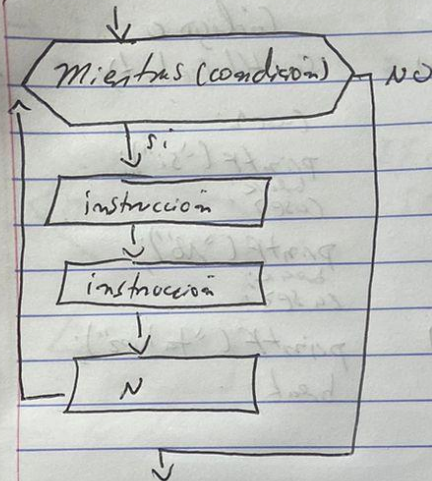 Mientras (condición) NO
si
instrucción
instrucción
N